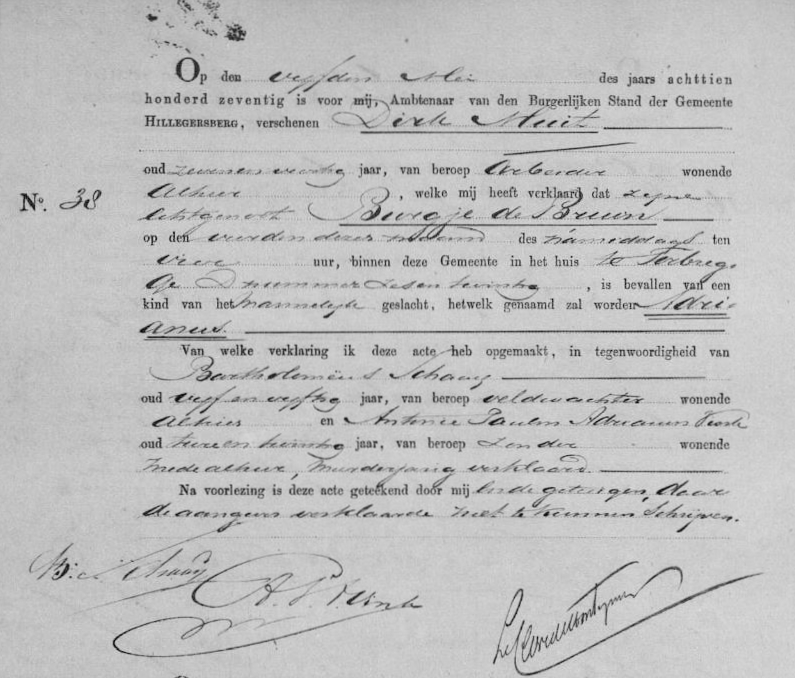 Op den vyfden Mei des jaars achttien
honderd zeventig is voor mij, Ambtenaar van den Burgerlijken Stand der Gemeente
HILLEGERSBERG, verschenen Dirk Muit
oud zevenenveertig jaar, van beroep Arbeider wonende
Alhier , welke mij heeft verklaard dat zyne
Echtgenoot Burgje de Bruin
op den vierden dezer maand des namiddags ten
vier uur, binnen deze Gemeente in het huis te Terbreg-
ge D nummer zesentwintig , is bevallen van een
kind van het mannelyk geslacht, hetwelk genaamd zal worden Adri-
anus.
Van welke verklaring ik deze acte heb opgemaakt, in tegenwoordigheid van
No. 38
Bartholomeus Schaay
oud vyf en vyftig jaar, van beroep veldwachter wonende
alhier en Antonie Paulus Adrianus
oud twee en twintig jaar, van beroep Zonder wonende
mede alhier, meerderjarig verklaard.
Na voorlezing is deze acte geteekend door mij en de getuigen, daar
de aangever verklaarde niet te kunnen Schrijven.
B: Schaay
A. P.